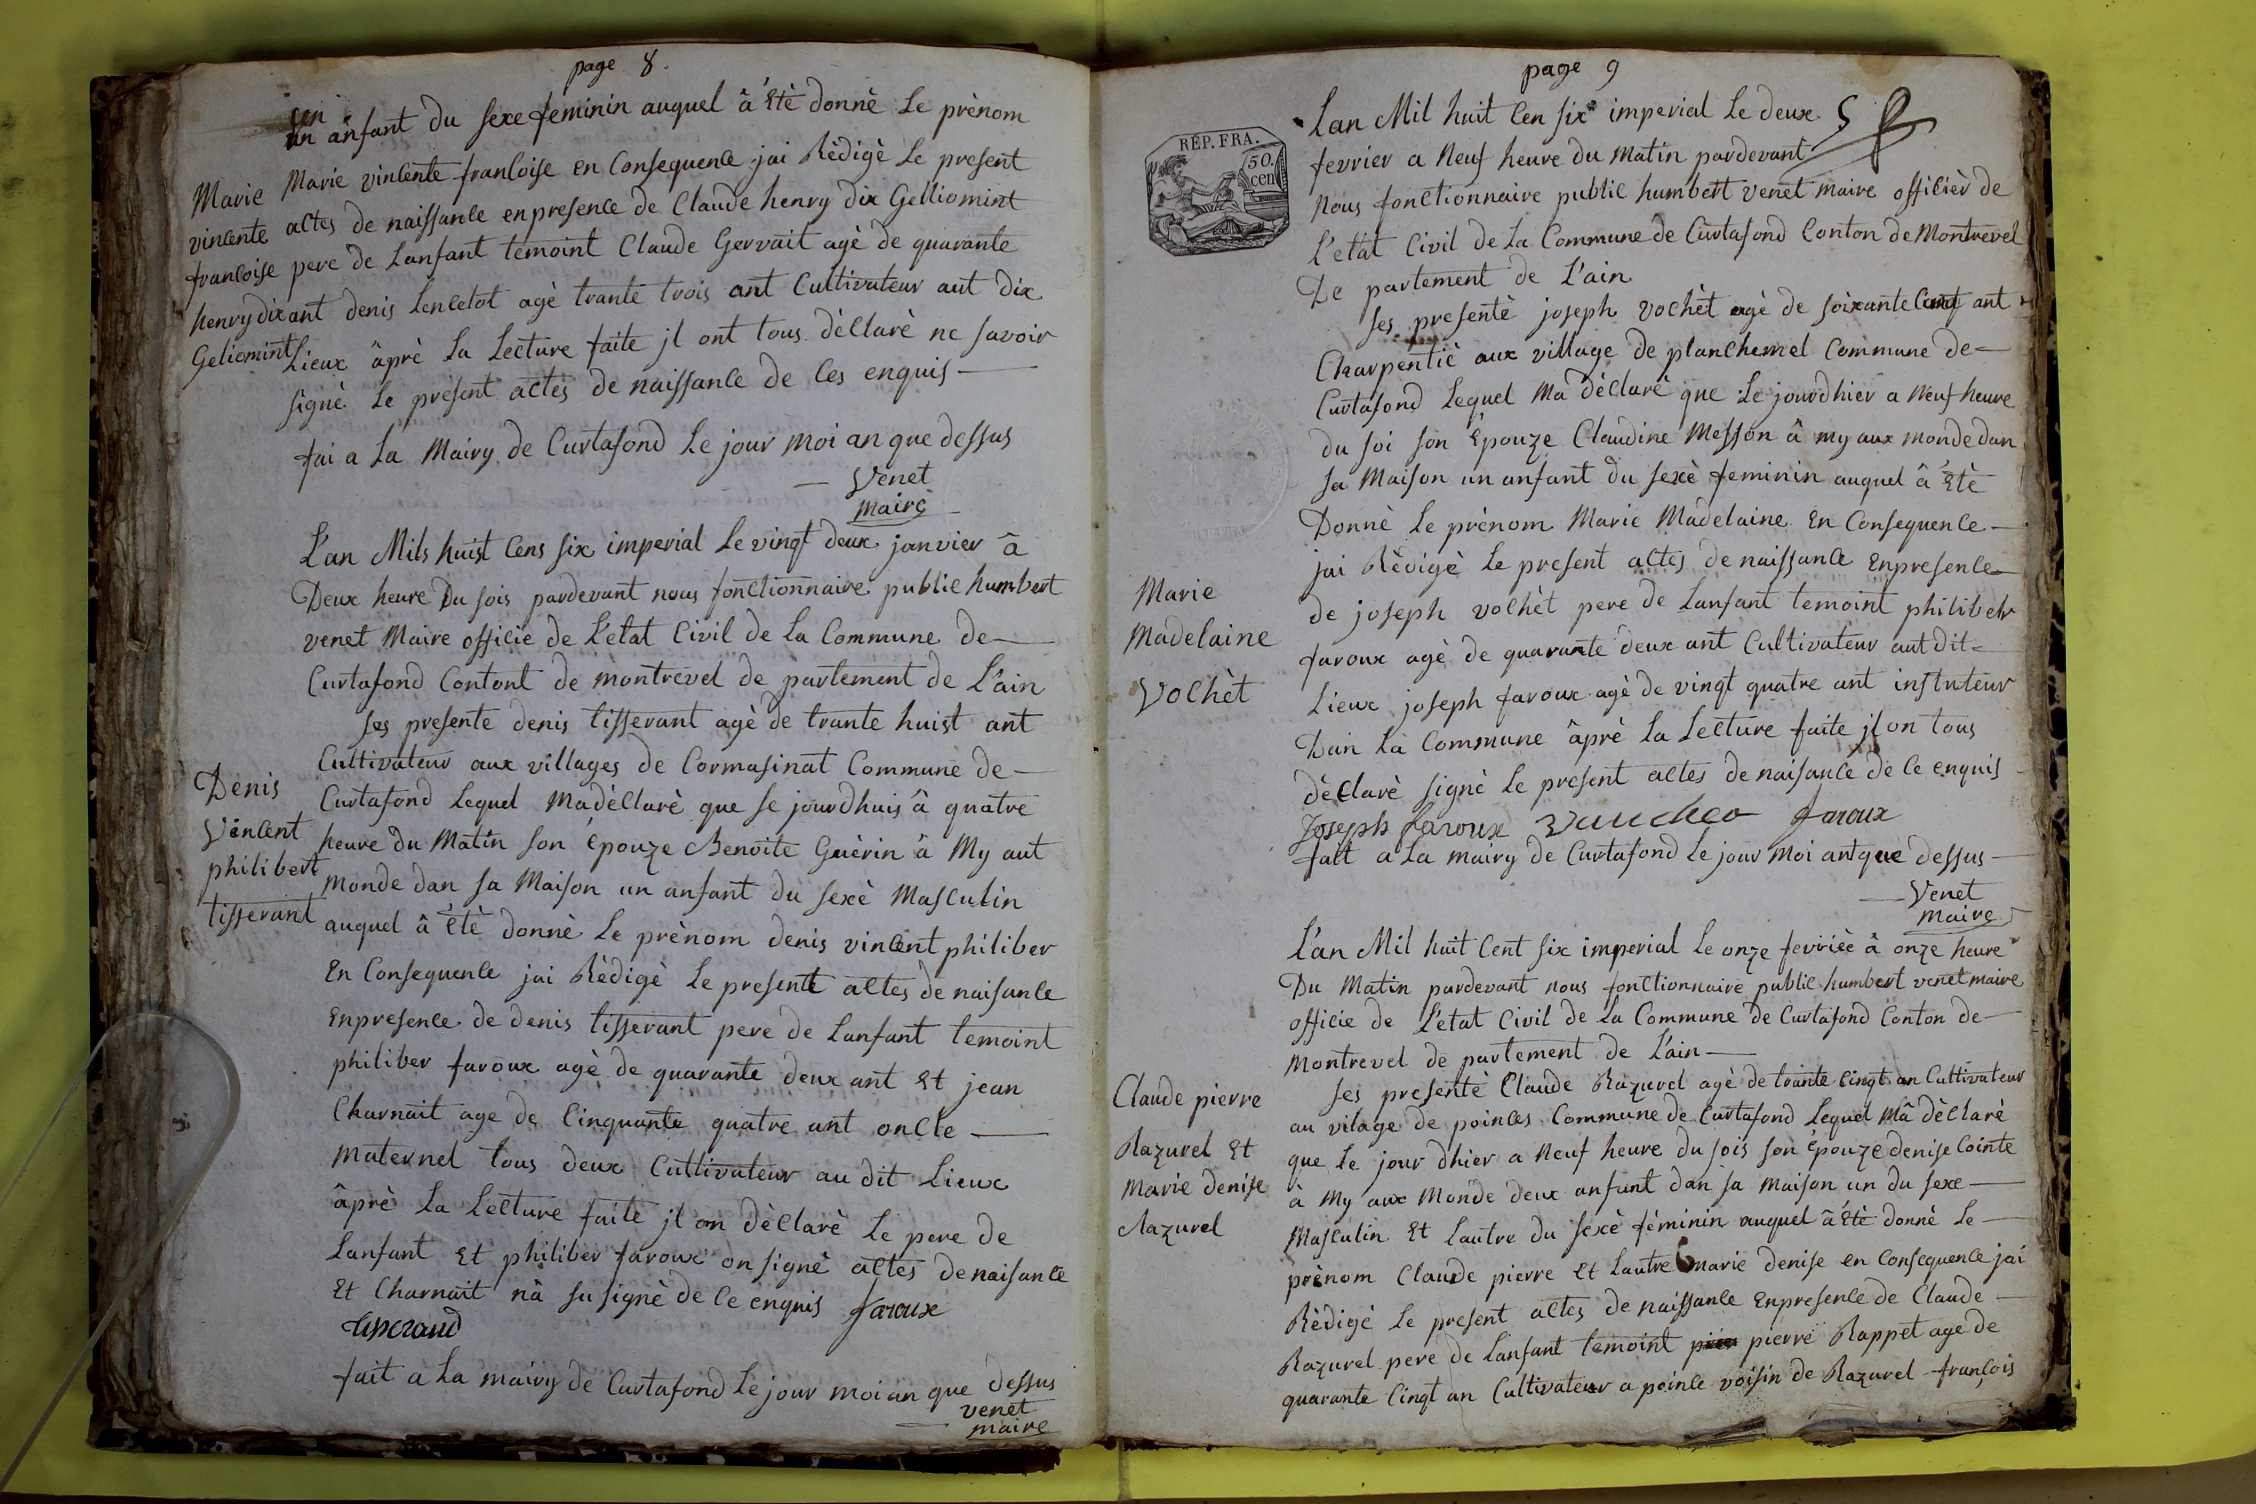 page 8.
un anfant du sexe feminin auquel â étè donnè le prènom
Marie vincente francoise en consequence jai Rèdigè le present
actes de naissance enpresence de Claude henry dix Gelliomint
pere de Lanfant temoint Claude Gervait agè de quarante
ant denis Lencelot agè trante trois ant Cultivateur aut dix
Lieux âprè la Lecture faite jl ont tous dèclarè ne savoir
signè le present actes de naissance de ces enquis
fai a la Mairy de Curtafond le jour moi an que dessus
Venet
maire
Marie
vincente
francoise
henry dix
Geliomint
L'an Mils huist Cens six imperial le vingt deux janvier â
Deux heure Du sois pardevant nous fonctionnaire public humbert
venet Maire officie de L'etat Civil de la Commune de
Curtafond Contont de montrevel de partement de L'ain
ses presente denis tisserant agè de trante huist ant
Cultivateur aux villages de Cormasinat Commune de
Curtafond Lequel Madèclarè que se jourdhuis â quatre
heure du Matin son èpouze Benoite Guèrin â My aut
monde dan sa Maison un anfant du sexè Masculin
auquel â étè donnè le prènom denis vincent philiber
En Consequence jai Rèdigè le present actes de naisance
Enpresence de denis tisserant pere de Lanfant temoint
philiber faroux agè de quarante deux ant Et jean
Charnait age de Cinquante quatre ant oncle
maternel tous deux Cultivateur au dit Lieux
âprè la Lecture faite jl on dèclarè le pere de
Lanfant Et philiber faroux on signè actes de naisance
Et Charnait nâ su signè de ce enquis faroux
tisserand
fait a la mairy de Curtafond le jour moi an que dessus
venet
maire
Denis
Vincent
philibert
tisserant
page 9
RÉP. FRA.
50.
cen
Lan Mil huit Cen six imperial le deux
fevrier a Neuf heure du Matin pardevant
Nous fonctionnaire public humbert venet maire officièr de
L'etat Civil de la Commune de Curtafond Conton de Montrevel
De partement de L'ain
ses presentè joseph vochèt agè de soixante Cinq ant
Charpentiè aux village de planchemel Commune de
Curtafond Lequel Ma dèclarè que le jourdhier a Neuf heure
du soi son Èpouze Claudine Messon â my aux monde dan
sa Maison un anfant du sexè feminin auquel â étè
Donnè le prènom Marie Madelaine En Consequence
jai Rèdigè le present actes de naissance Enpresence
de joseph vochèt pere de Lanfant temoint philibeh
faroux agè de quarante deux ant Cultivateur aut dit
Lieux joseph faroux agè de vingt quatre ant instuteur
Dain la Commune âprè la Lecture faite jl on tous
dèclarè signè le present actes de naisance de ce enquis
Joseph faroux faroux
fait a la mairy de Curtafond le jour Moi ant que dessus
Venet
maire
Marie
Madelaine
Vochèt
L'an Mil huit Cent six imperial le onze fevrièe â onze heure
Du Matin pardevant nous fonctionnaire public humbert venet maire
officie de L'etat Civil de la Commune de Curtafond Conton de
Montrevel de partement de L'ain
ses presentè Claude Razurel agè de trante Cingt an Cultivateur
au vilage de poinces Commune de Curtafond Lequel Mâ dèclarè
que le jour dhier a Neuf heure du sois son Èpouze denise Cointe
â My aux Monde deux anfant dan sa maison un du sexe
Masculin Et Lautre du sexè fèminin auquel â étè donnè le
prènom Claude pierre Et Lautre marie denise en Consequence jai
Rèdigè le present actes de naissance Enpresence de Claude
Razurel pere de Lanfant temoint pierre Rappet age de
quarante Cingt an Cultivateur a poince voisin de Razurel françois
Claude pierre
Razurel Et
marie denise
Razurel